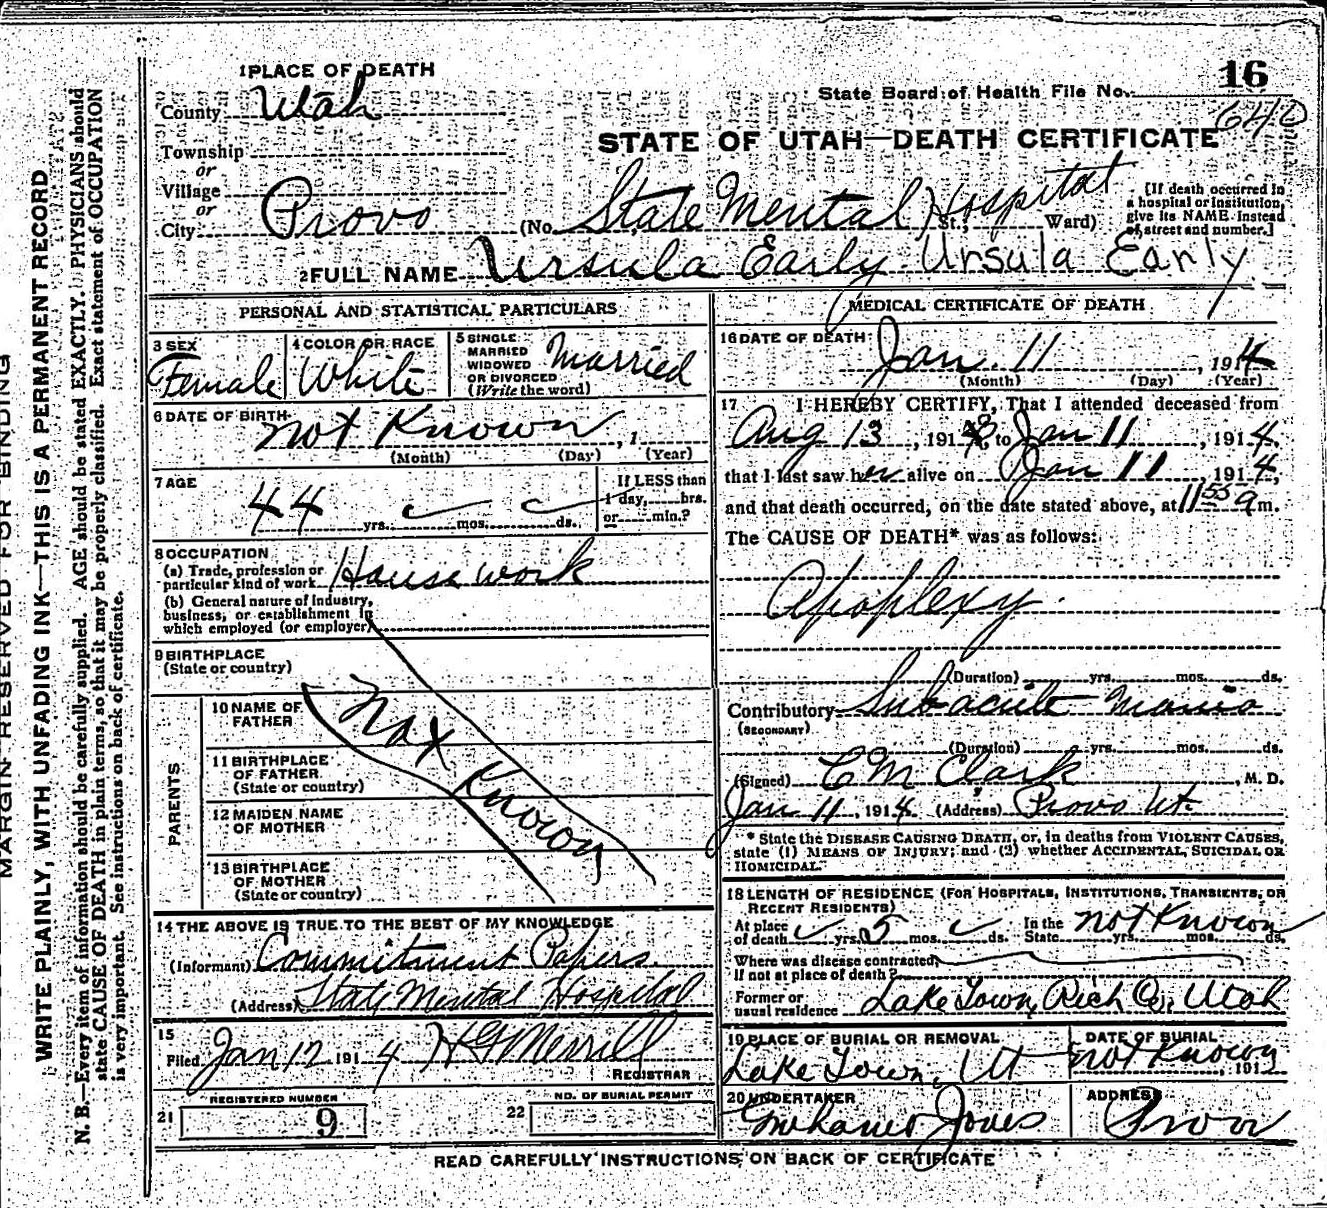 MARGIN RESERVED FOR BINDING
WRITE PLAINLY, WITH UNFADING INK—THIS IS A PERMANENT RECORD
N. B.—Every item of information should be carefully supplied. AGE should be stated EXACTLY. PHYSICIANS should
state CAUSE OF DEATH in plain terms, so that it may be properly classified. Exact statement of OCCUPATION
is very important. See instructions on back of certificate.
16
State Board of Health File No.
640
STATE OF UTAH—DEATH CERTIFICATE
1 PLACE OF DEATH
County Utah
Township
or
Village
or
City Provo
(No. State Mental Hospital St.; Ward)
[If death occurred in
a hospital or institution,
give its NAME instead
of street and number.]
2 FULL NAME Ursula Early Ursula Early
PERSONAL AND STATISTICAL PARTICULARS
3 SEX Female
4 COLOR OR RACE White
5 SINGLE
MARRIED
WIDOWED
OR DIVORCED
(Write the word)
Married
6 DATE OF BIRTH
not Known, 1
(Month) (Day) (Year)
7 AGE
44 yrs. mos. ds.
If LESS than
1 day, hrs.
or min.?
8 OCCUPATION
(a) Trade, profession or
particular kind of work House work
(b) General nature of industry,
business, or establishment in
which employed (or employer)
9 BIRTHPLACE
(State or country)
PARENTS
10 NAME OF
FATHER
11 BIRTHPLACE
OF FATHER
(State or country)
12 MAIDEN NAME
OF MOTHER
13 BIRTHPLACE
OF MOTHER
(State or country)
Not Known
14 THE ABOVE IS TRUE TO THE BEST OF MY KNOWLEDGE
(Informant) Commitment Papers
(Address) State Mental Hospital
15
Filed Jan 12 1914 H G Merrill
REGISTRAR
21
REGISTERED NUMBER
9
22
NO. OF BURIAL PERMIT
MEDICAL CERTIFICATE OF DEATH
16 DATE OF DEATH
Jan. 11, 1914
(Month) (Day) (Year)
17 I HEREBY CERTIFY, That I attended deceased from
Aug 13, 1913, to Jan 11, 1914,
that I last saw her alive on Jan 11 1914,
and that death occurred, on the date stated above, at 11 55 a m.
The CAUSE OF DEATH* was as follows:
Apoplexy.
(Duration) yrs. mos. ds.
Contributory Subacute Mania
(SECONDARY)
(Duration) yrs. mos. ds.
(Signed) C M Clark, M. D.
Jan 11, 1914 (Address) Provo Ut.
* State the DISEASE CAUSING DEATH, or, in deaths from VIOLENT CAUSES,
state (1) MEANS OF INJURY; and (2) whether ACCIDENTAL, SUICIDAL OR
HOMICIDAL.
18 LENGTH OF RESIDENCE (FOR HOSPITALS, INSTITUTIONS, TRANSIENTS, OR
RECENT RESIDENTS)
At place
of death yrs. 5 mos. ds.
In the
State not Known yrs. mos. ds.
Where was disease contracted,
If not at place of death?
Former or
usual residence Lake Town, Rich Co, Utah
19 PLACE OF BURIAL OR REMOVAL
Lake Town, Ut
DATE OF BURIAL
not Known, 191
20 UNDERTAKER
Jones
ADDRESS
Provo
READ CAREFULLY INSTRUCTIONS ON BACK OF CERTIFICATE